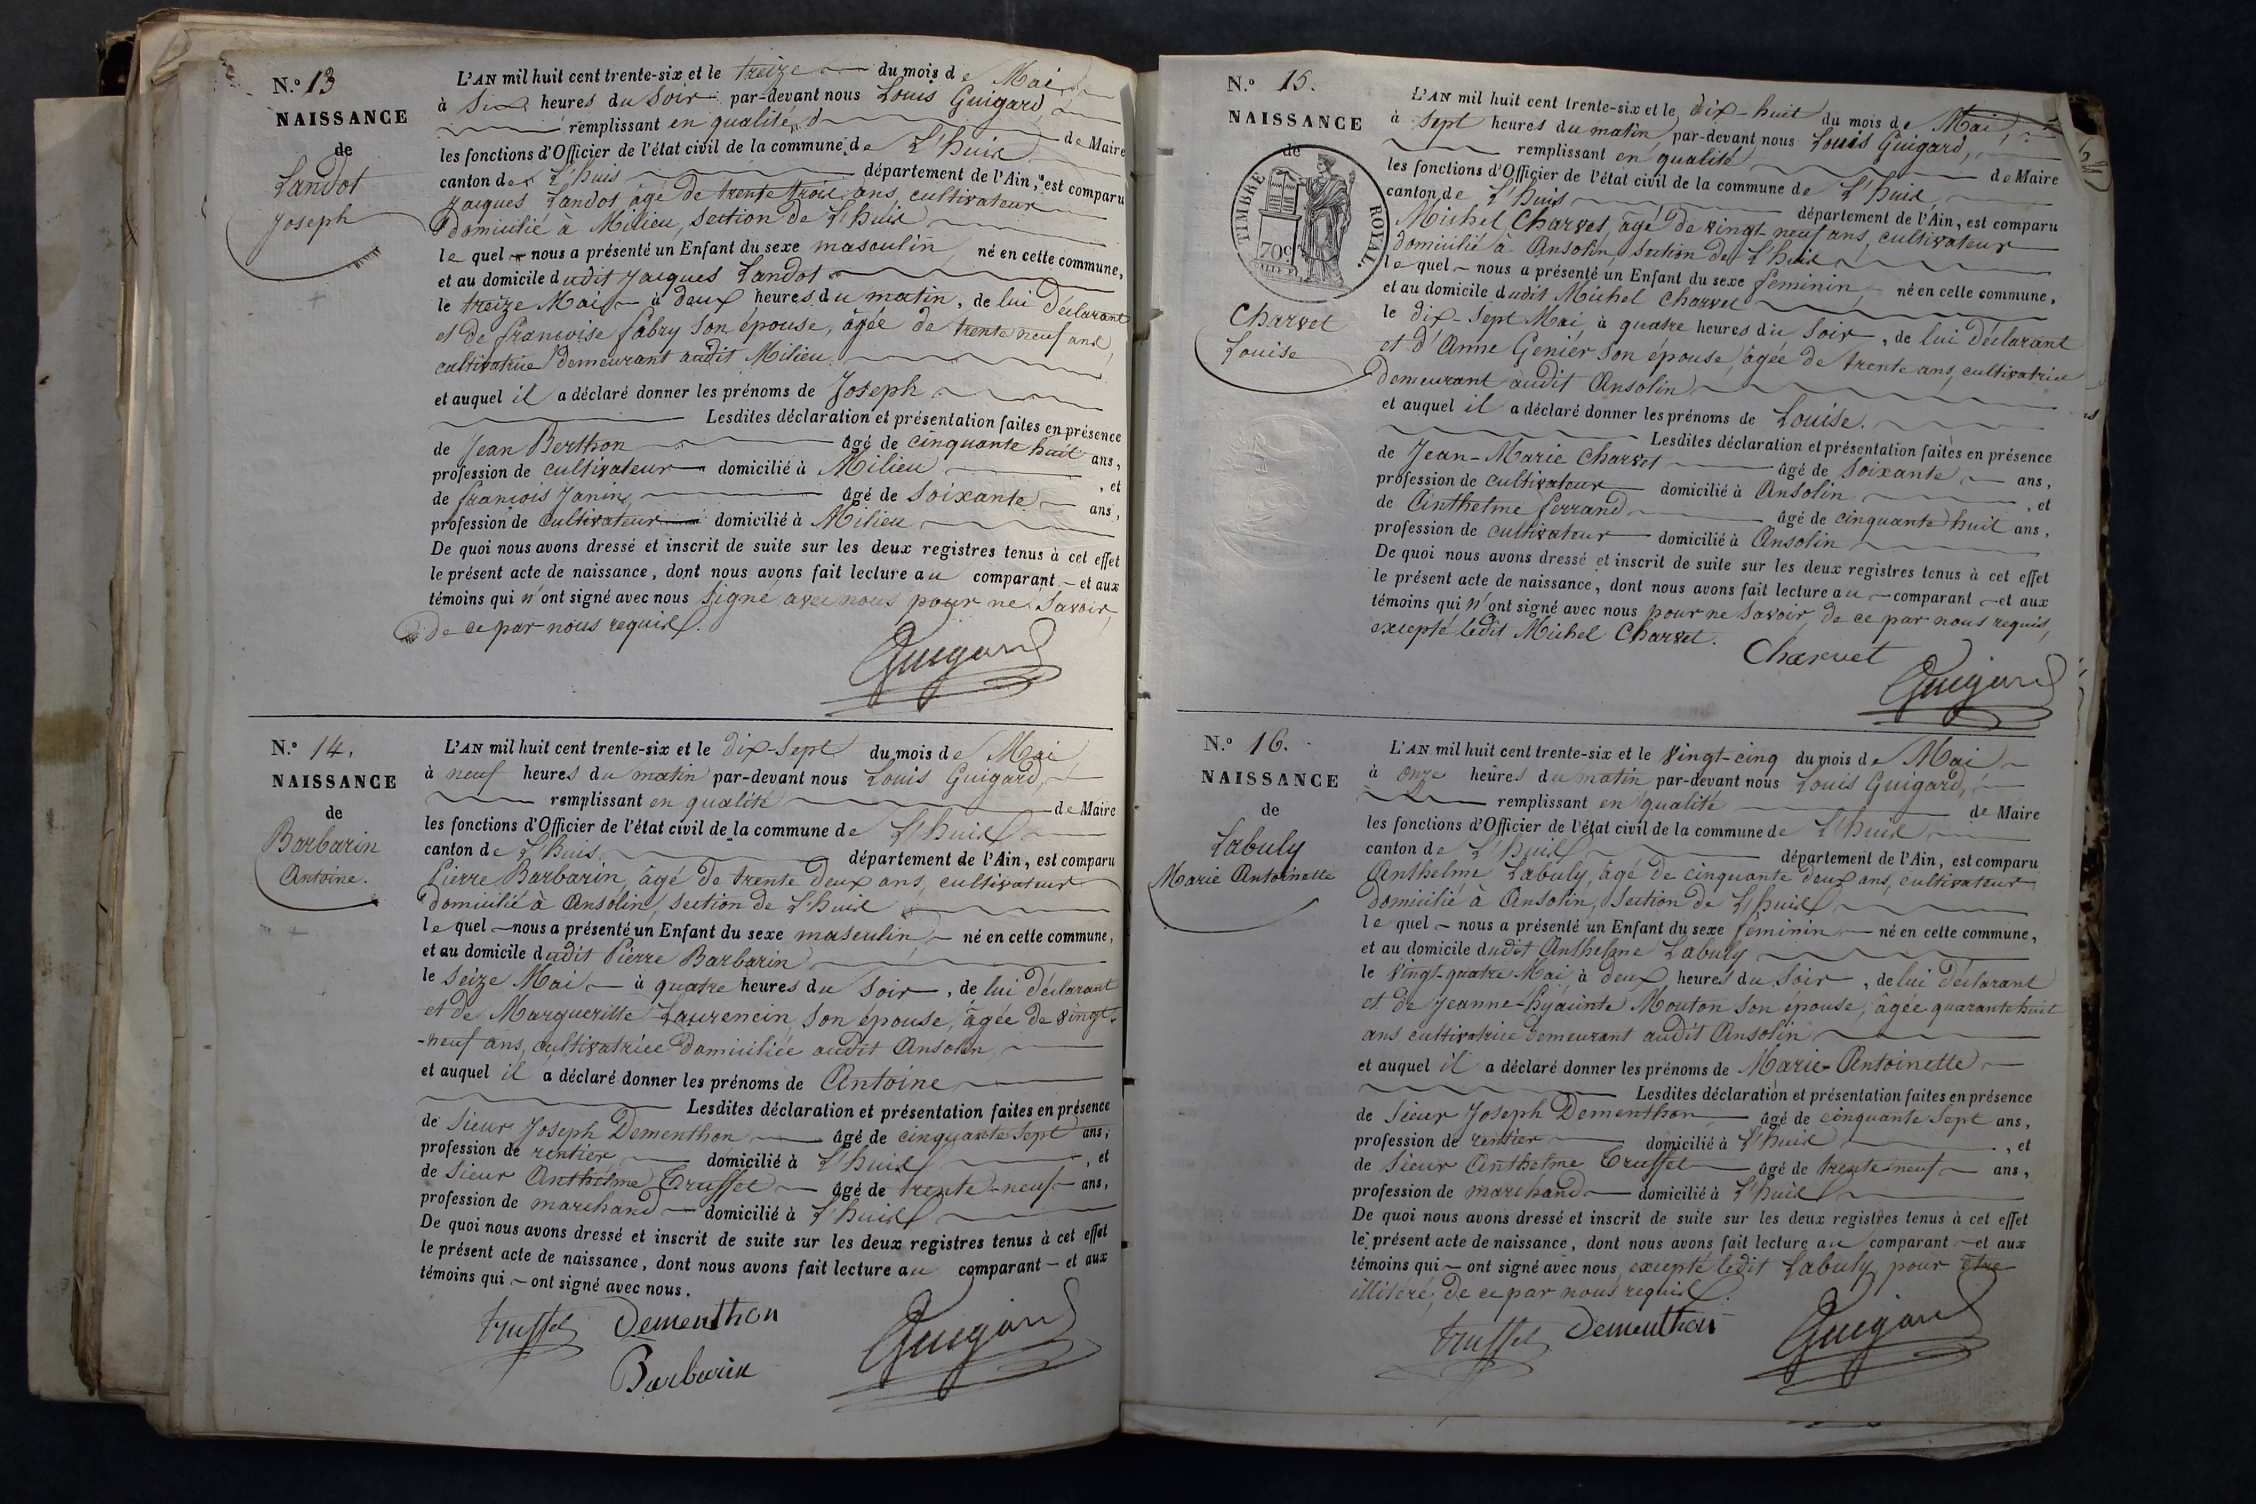 N.° 13
NAISSANCE
de
Landot
Joseph
L'AN mil huit cent trente-six et le treize du mois de Mai
à Six heures du Soir par-devant nous Louis Guigard,
remplissant en qualité de Maire
les fonctions d'Officier de l'état civil de la commune de L'huis
canton de L'huis département de l'Ain, est comparu
Jacques Landot âgé de trente trois ans, cultivateur
domicilié à Milieu, section de L'huis
le quel nous a présenté un Enfant du sexe masculin né en cette commune,
et au domicile dudit Jacques Landot
le treize Mai à deux heures du matin, de lui Déclarant
et de françoise fabry son épouse, âgée de trente neuf ans,
cultivatrice demeurant audit Milieu
et auquel il a déclaré donner les prénoms de Joseph
Lesdites déclaration et présentation faites en présence
de Jean Berthon âgé de cinquante huit ans,
profession de cultivateur domicilié à Milieu, et
de françois Janin âgé de soixante ans,
profession de cultivateur domicilié à Milieu
De quoi nous avons dressé et inscrit de suite sur les deux registres tenus à cet effet
le présent acte de naissance, dont nous avons fait lecture au comparant et aux
témoins qui n'ont signé avec nous signé avec nous pour ne Savoir,
de ce par nous requis.
Guigard
N.° 14.
NAISSANCE
de
Barbarin
Antoine.
L'AN mil huit cent trente-six et le dix-sept du mois de Mai
à neuf heures du matin par-devant nous Louis Guigard,
remplissant en qualité de Maire
les fonctions d'Officier de l'état civil de la commune de L'huis
canton de L'huis département de l'Ain, est comparu
Pierre Barbarin, âgé de trente deux ans, cultivateur
domicilié à Ansolin, section de L'huis
le quel nous a présenté un Enfant du sexe masculin né en cette commune,
et au domicile dudit Pierre Barbarin
le seize Mai à quatre heures du Soir, de lui Déclarant
et de Margueritte Laurencin, son épouse, âgée de vingt-
-neuf ans, cultivatrice domiciliée audit Ansolin
et auquel il a déclaré donner les prénoms de Antoine
Lesdites déclaration et présentation faites en présence
de Sieur Joseph Dementhon âgé de cinquante sept ans,
profession de rentier domicilié à L'huis, et
de Sieur Anthelme Truffet âgé de trente-neuf ans,
profession de marchand domicilié à L'huis
De quoi nous avons dressé et inscrit de suite sur les deux registres tenus à cet effet
le présent acte de naissance, dont nous avons fait lecture au comparant et aux
témoins qui ont signé avec nous.
truffet Dementhon
Barbarin
Guigard
N.° 15.
NAISSANCE
de
TIMBRE ROYAL
70c
Charvet
Louise
L'AN mil huit cent trente-six et le dix-huit du mois de Mai,
à sept heures du matin, par-devant nous Louis Guigard,
remplissant en qualité de Maire
les fonctions d'Officier de l'état civil de la commune de L'huis
canton de L'huis département de l'Ain, est comparu
Michel Charvet, âgé de vingt neuf ans, cultivateur
domicilié à Ansolin, section de L'huis
le quel nous a présenté un Enfant du sexe feminin, né en cette commune,
et au domicile dudit Michel Charvet
le dix-sept Mai, à quatre heures du Soir, de lui Déclarant
et d'Anne Genier son épouse, âgée de trente ans, cultivatrice
demeurant audit Ansolin
et auquel il a déclaré donner les prénoms de Louise.
Lesdites déclaration et présentation faites en présence
de Jean-Marie Charvet âgé de soixante ans,
profession de cultivateur domicilié à Ansolin, et
de Anthelme ferrand âgé de cinquante huit ans,
profession de cultivateur domicilié à Ansolin
De quoi nous avons dressé et inscrit de suite sur les deux registres tenus à cet effet
le présent acte de naissance, dont nous avons fait lecture au comparant et aux
témoins qui n'ont signé avec nous pour ne Savoir, de ce par nous requis,
excepté ledit Michel Charvet.
Charvet
Guigard
N.° 16.
NAISSANCE
de
Labuly
Marie Antoinette
L'AN mil huit cent trente-six et le vingt-cinq du mois de Mai
à onze heures du matin par-devant nous Louis Guigard,
remplissant en qualité de Maire
les fonctions d'Officier de l'état civil de la commune de L'huis
canton de L'huis département de l'Ain, est comparu
Anthelme Labuly, âgé de cinquante deux ans, cultivateur
domicilié à Ansolin, section de L'huis
le quel nous a présenté un Enfant du sexe feminin né en cette commune,
et au domicile dudit Anthelme Labuly
le vingt-quatre Mai, à deux heures du Soir, de lui Déclarant
et de Jeanne-hyacinte Mouton son épouse, âgée quarante huit
ans cultivatrice demeurant audit Ansolin
et auquel il a déclaré donner les prénoms de Marie-Antoinette
Lesdites déclaration et présentation faites en présence
de Sieur Joseph Dementhon âgé de cinquante sept ans,
profession de rentier domicilié à L'huis, et
de Sieur Anthelme Truffet âgé de trente-neuf ans,
profession de marchand domicilié à L'huis
De quoi nous avons dressé et inscrit de suite sur les deux registres tenus à cet effet
le présent acte de naissance, dont nous avons fait lecture au comparant et aux
témoins qui ont signé avec nous excepté ledit Labuly, pour être
illitéré, de ce par nous requis.
truffet Dementhon
Guigard